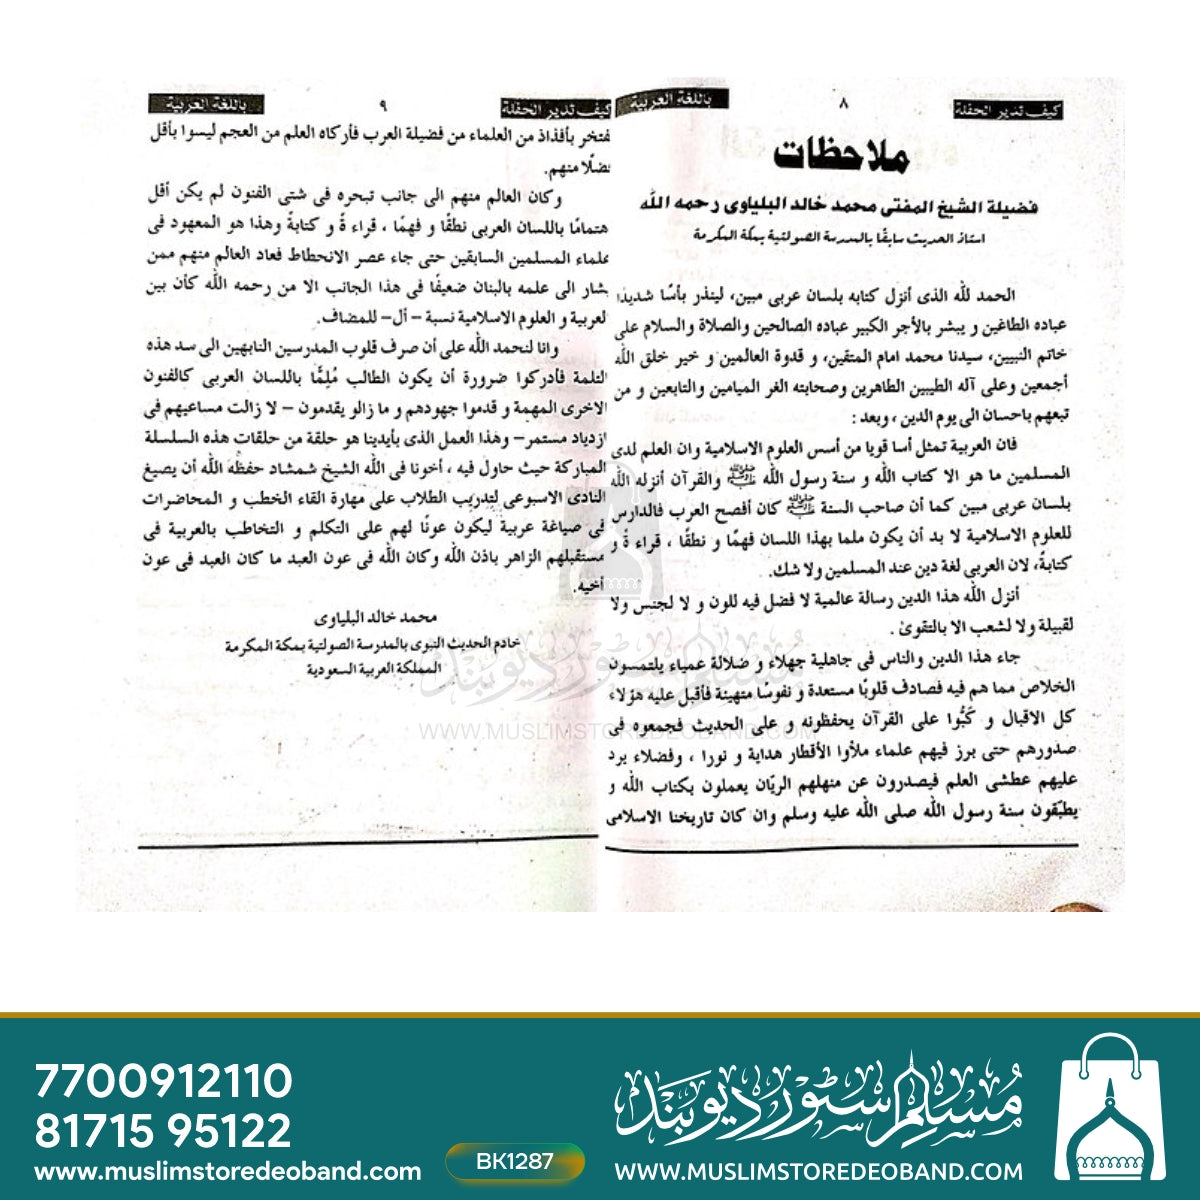 كيف تدير الحفلة
٨
باللغة العربية
ملاحظات
فضيلة الشيخ المفتى محمد خالد البلياوى رحمه الله
استاذ الحديث سابقًا بالمدرسة الصولتية بمكة المكرمة
الحمد لله الذى أنزل كتابه بلسان عربى مبين، لينذر بأسًا شديدًا
عباده الطاغين و يبشر بالأجر الكبير عباده الصالحين والصلاة والسلام على
خاتم النبيين، سيدنا محمد امام المتقين، و قدوة العالمين و خير خلق الله
أجمعين وعلى آله الطيبين الطاهرين وصحابته الغر الميامين والتابعين و من
تبعهم باحسان الى يوم الدين ، وبعد :
فان العربية تمثل أسا قويا من أسس العلوم الاسلامية وان العلم لدى
المسلمين ما هو الا كتاب الله و سنة رسول الله ﷺ والقرآن أنزله الله
بلسان عربى مبين كما أن صاحب السنة ﷺ كان أفصح العرب فالدارس
للعلوم الاسلامية لا بد أن يكون ملما بهذا اللسان فهمًا و نطقًا ، قراء ةً و
كتابةً، لان العربى لغة دين عند المسلمين ولا شك.
أنزل الله هذا الدين رسالة عالمية لا فضل فيه للون و لا لجنس ولا
لقبيلة ولا لشعب الا بالتقوىٰ .
جاء هذا الدين والناس فى جاهلية جهلاء و ضلالة عمياء يلتمسون
الخلاص مما هم فيه فصادف قلوبًا مستعدة و نفوسًا متهيئة فأقبل عليه هؤلاء
كل الاقبال و كَبُّوا على القرآن يحفظونه و على الحديث فجمعوه فى
صدورهم حتى برز فيهم علماء ملأوا الأقطار هداية و نورا ، وفضلاء يرد
عليهم عطشى العلم فيصدرون عن منهلهم الريّان يعملون بكتاب الله و
يطبّقون سنة رسول الله صلى الله عليه وسلم وان كان تاريخنا الاسلامى
كيف تدير الحفلة
٩
باللغة العربية
فتخر بأفذاذ من العلماء من فضيلة العرب فأركاه العلم من العجم ليسوا بأقل
ضلًا منهم.
وكان العالم منهم الى جانب تبحره فى شتى الفنون لم يكن أقل
هتمامًا باللسان العربى نطقًا و فهمًا ، قراء ةً و كتابةً وهذا هو المعهود فى
علماء المسلمين السابقين حتى جاء عصر الانحطاط فعاد العالم منهم ممن
يشار الى علمه بالبنان ضعيفًا فى هذا الجانب الا من رحمه الله كأن بين
لعربية و العلوم الاسلامية نسبة – أل – للمضاف.
وانا لنحمد الله على أن صرف قلوب المدرسين النابهين الى سد هذه
الثلمة فأدركوا ضرورة أن يكون الطالب مُلِمًّا باللسان العربى كالفنون
الاخرى المهمة و قدموا جهودهم و ما زالو يقدمون – لا زالت مساعيهم فى
ازدياد مستمر – وهذا العمل الذى بأيدينا هو حلقة من حلقات هذه السلسلة
المباركة حيث حاول فيه ، أخونا فى الله الشيخ شمشاد حفظه الله أن يصيغ
النادى الاسبوعى لتدريب الطلاب على مهارة القاء الخطب و المحاضرات
فى صياغة عربية ليكون عونًا لهم على التكلم و التخاطب بالعربية فى
مستقبلهم الزاهر باذن الله وكان الله فى عون العبد ما كان العبد فى عون
أخيه.
محمد خالد البلياوى
خادم الحديث النبوى بالمدرسة الصولتية بمكة المكرمة
المملكة العربية السعودية
مسلم سٹور دیوبند
WWW.MUSLIMSTOREDEOBAND.COM
7700912110
81715 95122
www.muslimstoredeoband.com
BK1287
مسلم سٹور دیوبند
WWW.MUSLIMSTOREDEOBAND.COM